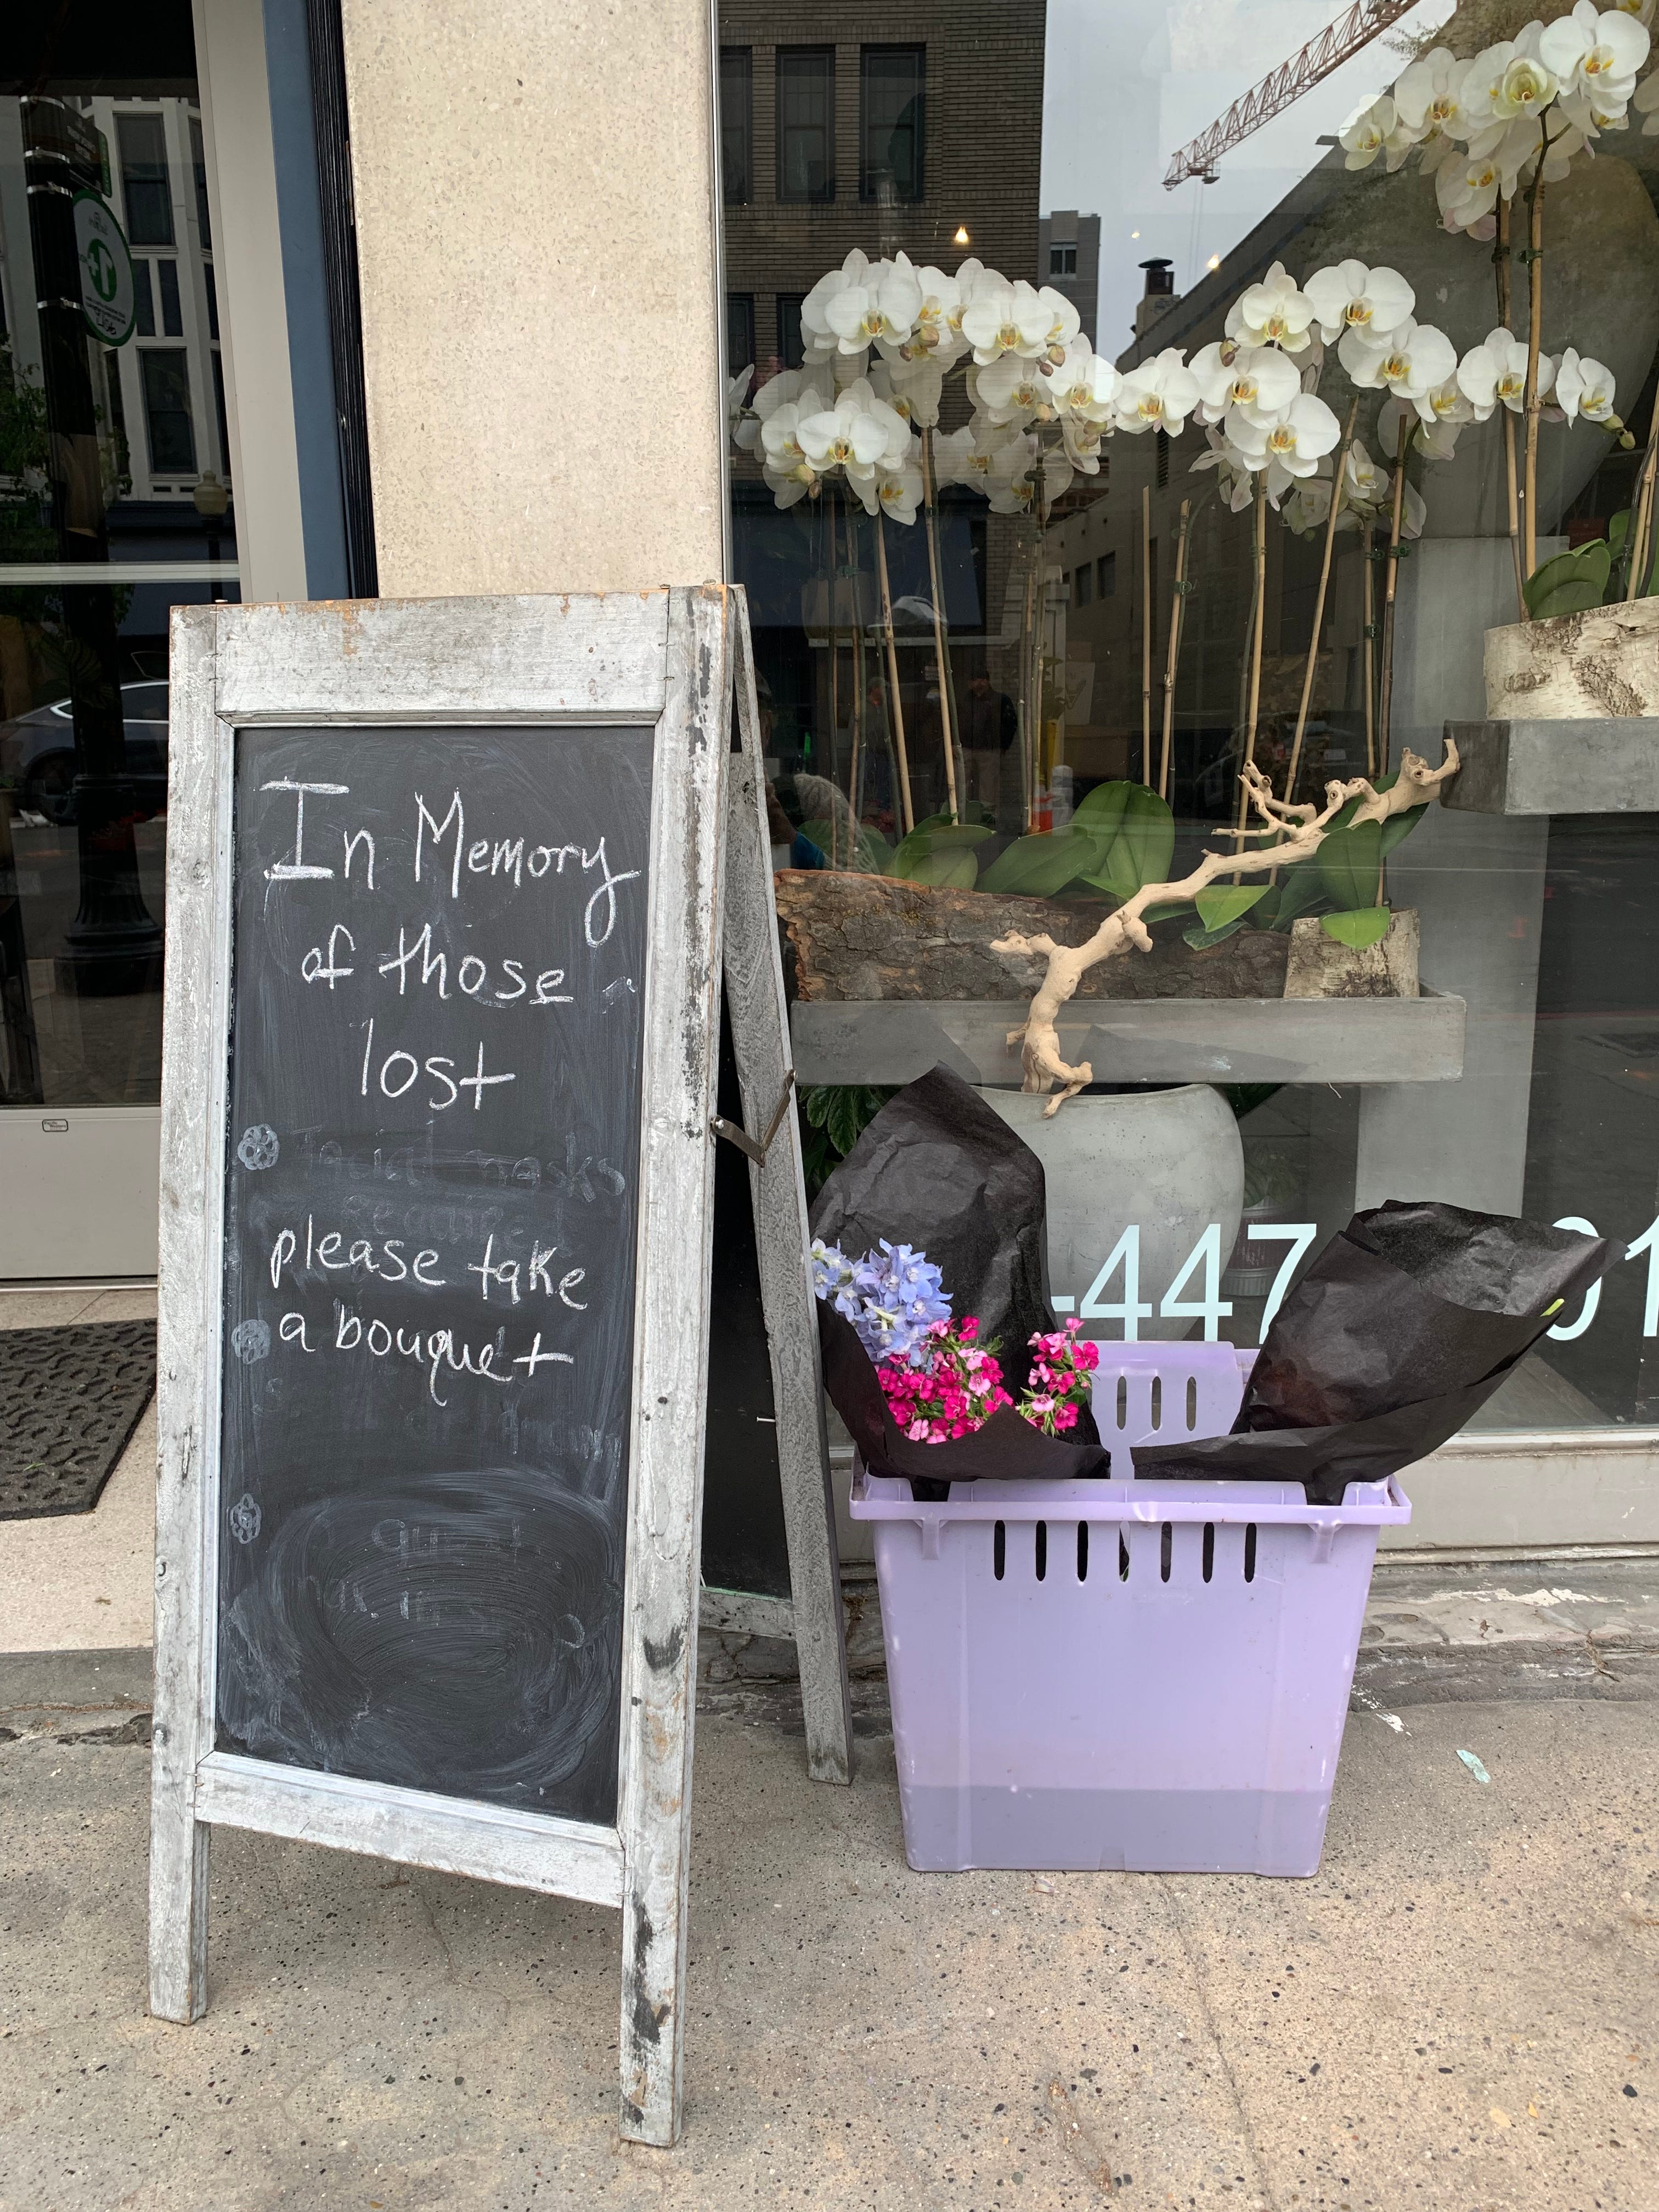 In Memory
of those
lost
please take
a bouquet
-447
01